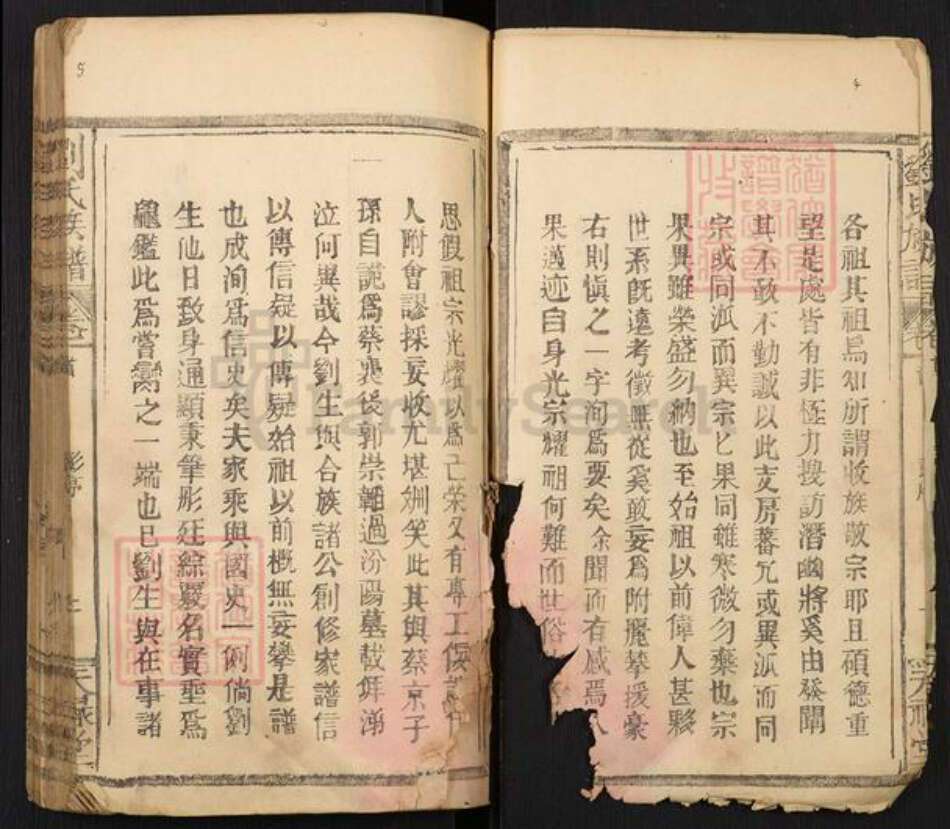 各祖其祖烏知所謂收族敬宗耶且碩德重
望是處皆有非極力搜訪潛幽將奚由發闡
其不敢不勤誠以此支房蕃冗或異派而同
宗或同派而異宗匕果同雖寒微勿棄也宗
果異雖榮盛勿納也至始祖以前偉人甚夥
世系既遠考徵無從奚敢妄爲附麗攀援豪
右則愼之一字洵爲要矣余聞而有感焉人
果邁迹自身光宗耀祖何難而世俗
思假祖宗光耀以爲己榮又有專工
人附會謬採妄收尤堪姍笑此其與蔡京子
孫自詭爲蔡襄後郭崇韜過汾陽墓載拜湧
泣何異哉今劉生與合族諸公創修家譜信
以傳信疑以傳疑始祖以前概無妄攀是譜
也成洵爲信史矣夫家乘與國史一例倘劉
生他日致身通顯秉筆彤廷綜覈名實聖爲
龜鑑此爲嘗臠之一端也已劉生與在事諸
劉氏族譜
卷首
FamilySearch
5
4